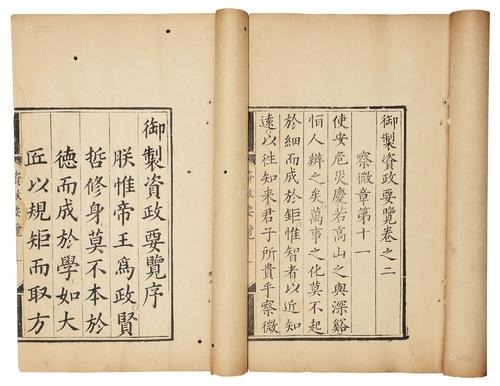 御製資政要覽卷之二
察微章第十一
使安危災慶若高山之與深谿
恒人辨之矣萬事之化莫不起
於細而成於鉅惟智者以近知
遠以往知来君子所貴乎察微
資政要覽
御製資政要覽序
朕惟帝王爲政賢
哲修身莫不本於
德而成於學如大
匠以規矩而取方
資政要覽